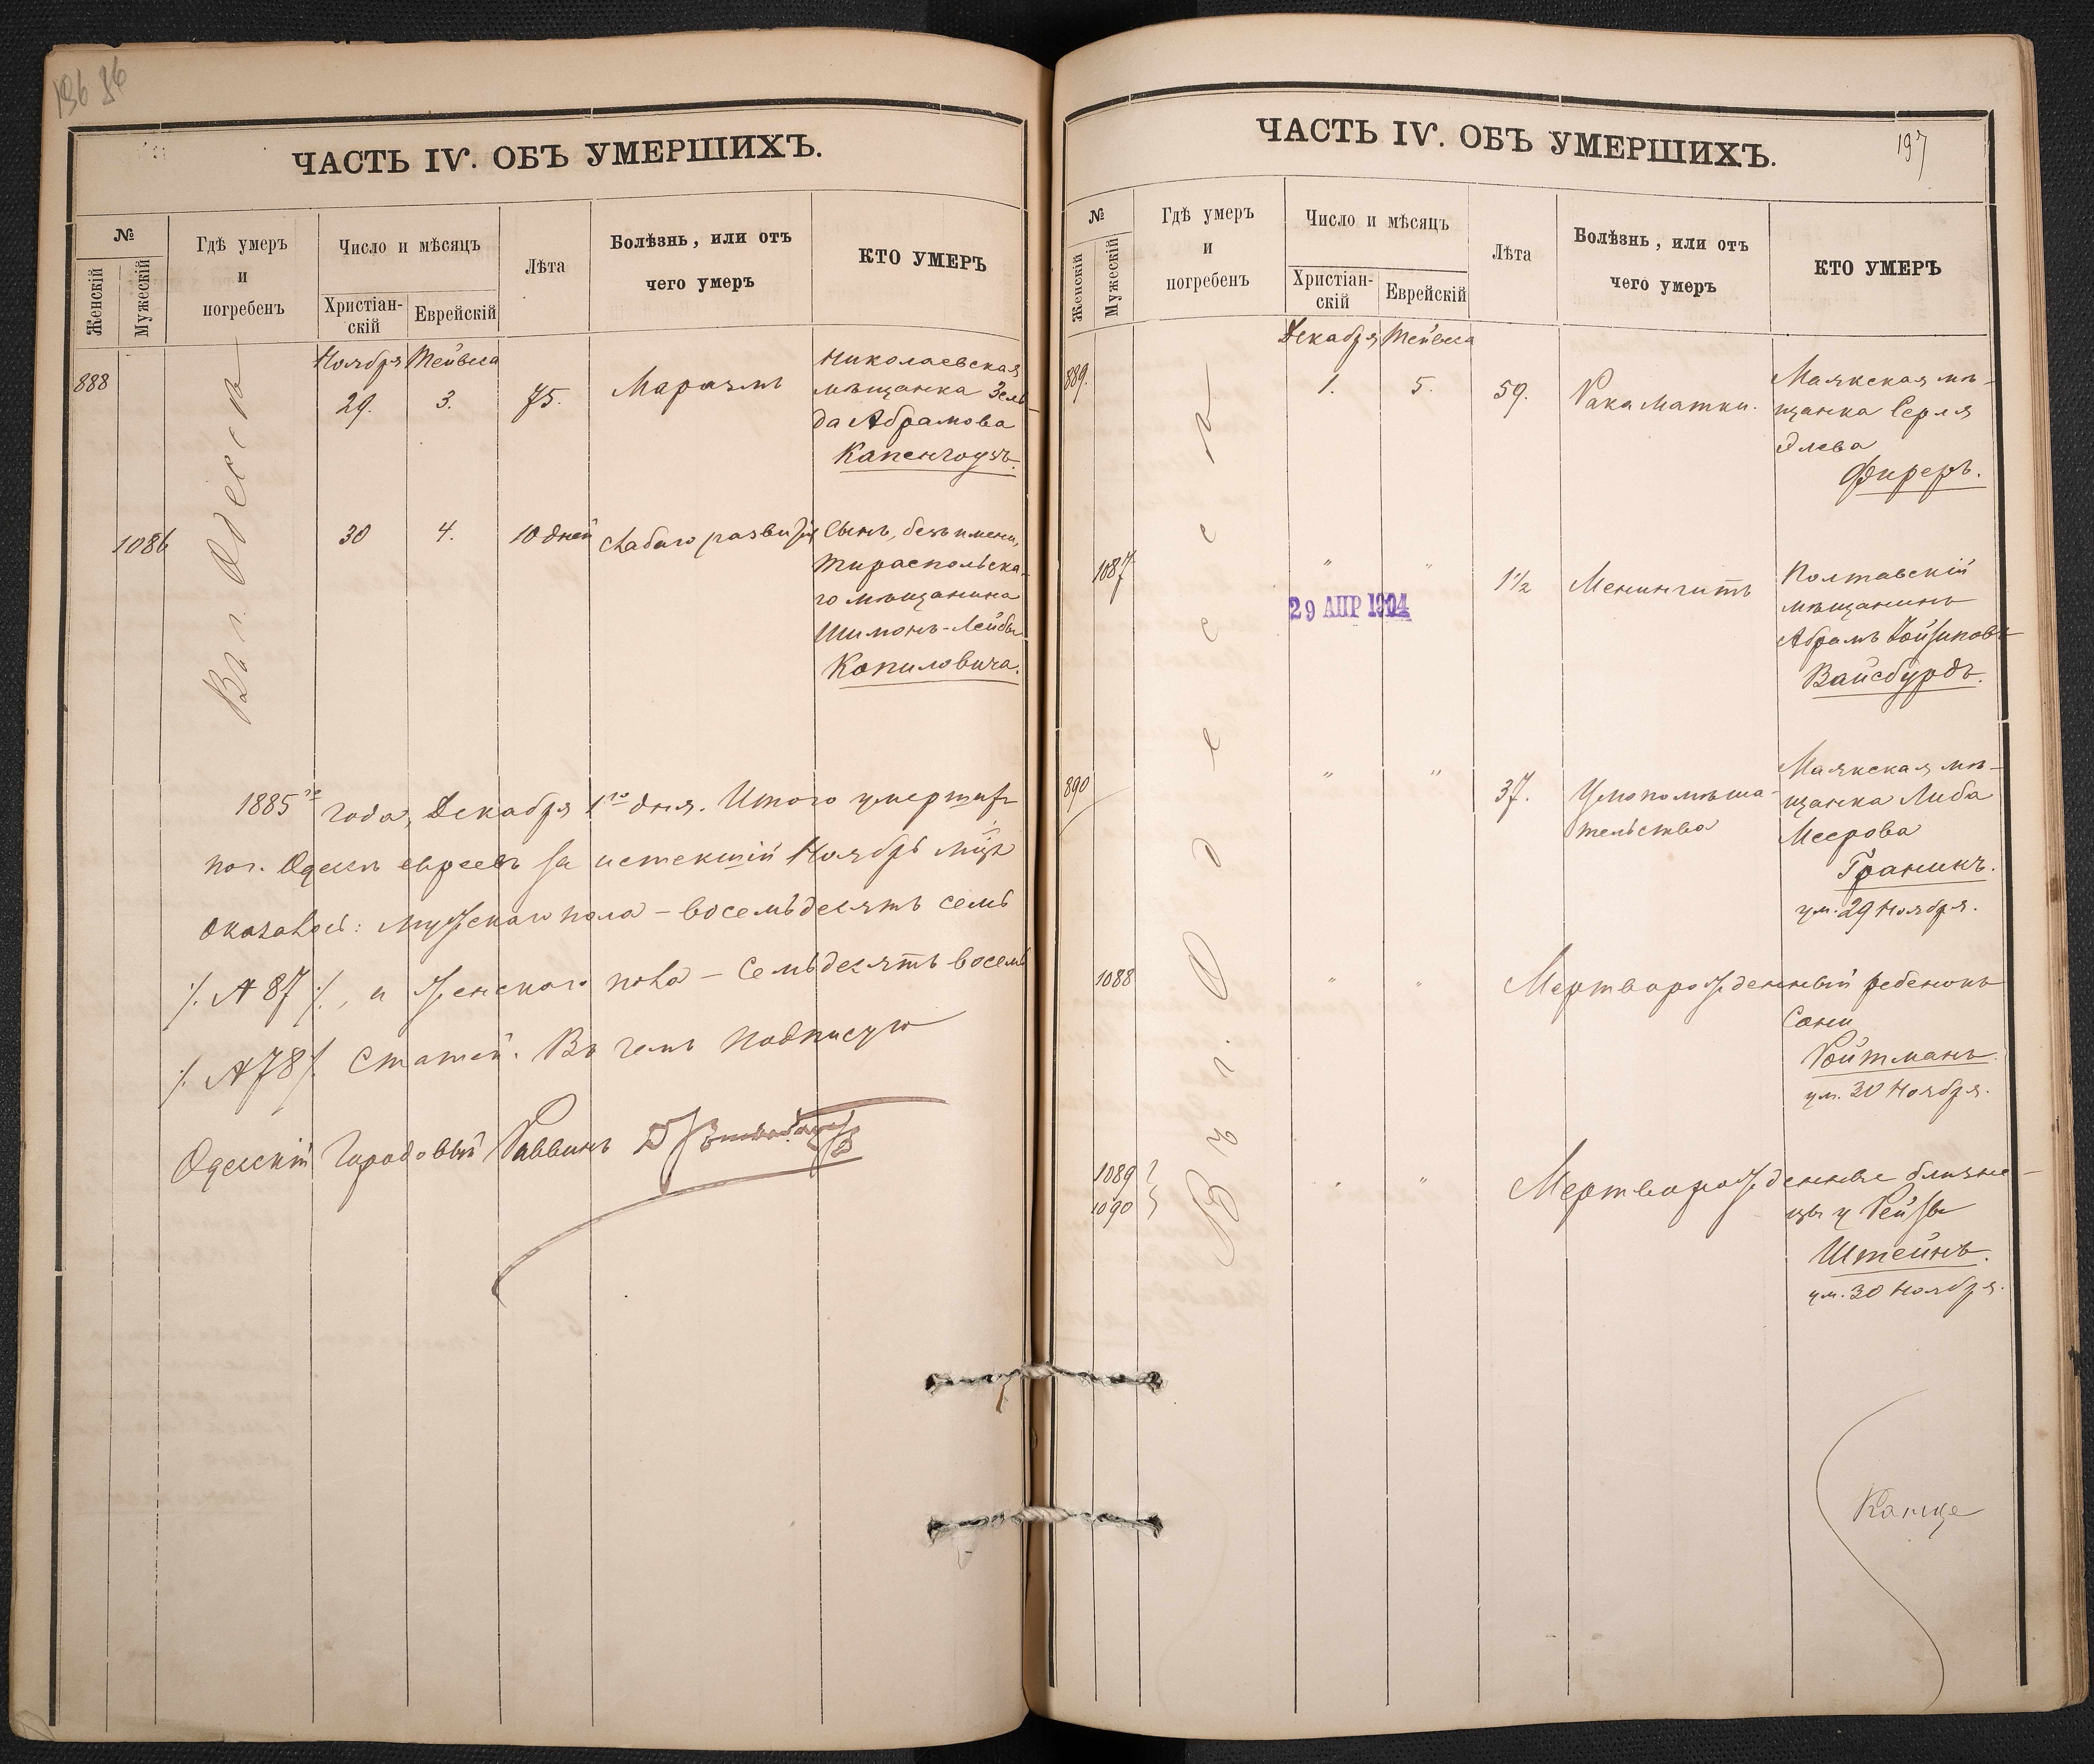 196 96
ЧАСТЬ IV. ОБЪ УМЕРШИХЪ.
№
Женскій
Мужескій
Гдѣ умеръ
и
погребенъ
Число и мѣсяцъ
Христіан-
скій
Еврейскій
Лѣта
Болѣзнь, или отъ
чего умеръ
КТО УМЕРЪ
Ноября Тейвеса
888
29.
3.
75.
Маразмъ
Николаевская
мѣщанка Зель-
да Абрамова
Капенгоузъ.
1086
30
4.
10 дней
Слабаго развитія
Сынъ, безъ имени,
Тираспольска-
го мѣщанина
Шимонъ-Лейбы
Копиловича.
Въ г. Одессѣ
1885го года, Декабря 1го дня. Итого умершихъ
по г. Одессѣ евреевъ за истекшій Ноябрь м-цъ
оказалось: мужскаго пола – восемьдесятъ семь
/. № 87 /., и женскаго пола – семьдесятъ восемь
/. № 78 /. статей. Въ чемъ подписую
Одесскій Городовый Раввинъ
ЧАСТЬ IV. ОБЪ УМЕРШИХЪ.
197
№
Женскій
Мужескій
Гдѣ умеръ
и
погребенъ
Число и мѣсяцъ
Христіан-
скій
Еврейскій
Лѣта
Болѣзнь, или отъ
чего умеръ
КТО УМЕРЪ
Декабря Тейвеса
889.
1.
5.
59.
Рака матки.
Маякская мѣ-
щанка Серля
Элева
Фиреръ.
1087
"
"
29 АПР 1904
1 1/2
Менингитъ
Полтавскій
мѣщанинъ
Абрамъ Іойзиповъ
Вайсбурдъ.
890
"
"
37.
Умопомѣша-
тельства
Маякская мѣ-
щанка Либа
Меерова
Граникъ.
ум. 29 Ноября.
1088
"
"
Мертворожденный ребенокъ
Сони
Ройтманъ.
ум. 30 Ноября.
1089
1090
"
"
Мертворожденные близне-
цы у Рейзы
Штейнъ.
ум. 30 Ноября.
Въ г. Одессѣ